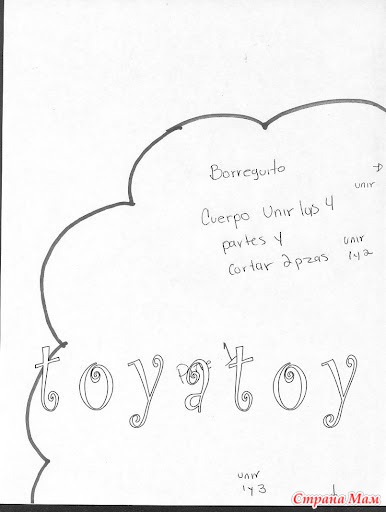 Borreguito
unir
Cuerpo Unir las 4
partes y
cortar 2 pzas
unir
1 y 2
toyatoy
unir
1 y 3
1
Страна Мам